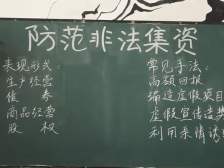 防范非法集资
表现形式：
生产经营
债券
商品经营
股权
常见手法：
高额回报
编造虚假项目
虚假宣传造势
利用亲情诱